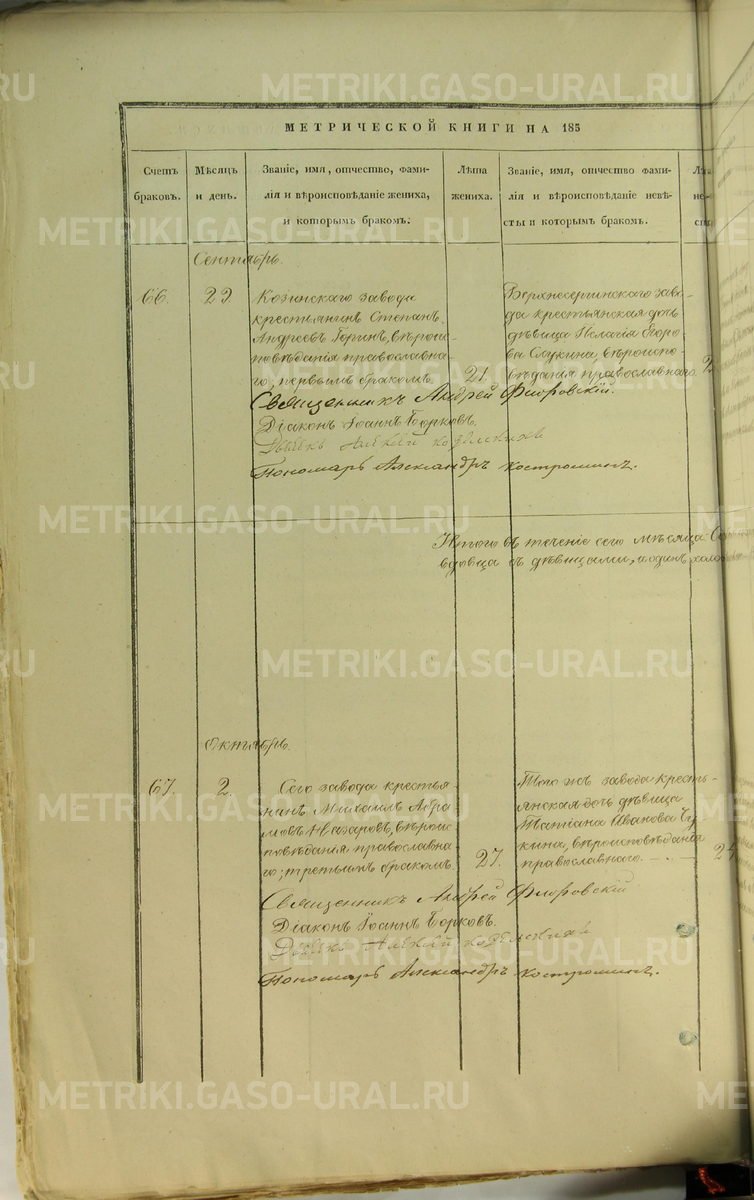 МЕТРИЧЕСКОЙ КНИГИ НА 185
Счетъ браковъ.
Мѣсяцъ и день.
Званіе, имя, отчество, фами-
лія и вѣроисповѣданіе жениха,
и которымъ бракомъ:
Лѣта жениха.
Званіе, имя, отчество фами-
лія и вѣроисповѣданіе невѣ-
сты и которымъ бракомъ.
Сентябрь.
66.
29.
Козинскаго завода
крестьянинъ Степанъ
Андреевъ вѣроис-
повѣданія православна-
го; первымъ бракомъ.
21.
Верхнесергинскаго заво-
да крестьянская дочь
дѣвица Пелагія Егоро
ва вѣроиспо
вѣданія православнаго.
Священникъ Андрей Флоровскій.
Діаконъ Іоаннъ Борковъ.
Дьячекъ Алексѣй
Пономарь Александръ Костроминъ.
Итого въ теченіе сего мѣсяца
вдовца съ дѣвицами, а одинъ
Октябрь.
67.
2.
Сего завода крестья-
нинъ Михаилъ Абра
мовъ Назаровъ, вѣроис
повѣданія православна
го; третьимъ бракомъ.
27.
Того жъ завода кресть-
янская дочь дѣвица
Татіана Иванова
кина, вѣроисповѣданія
православнаго.
Священникъ Андрей Флоровскій
Діаконъ Іоаннъ Борковъ.
Дьячекъ Алексѣй
Пономарь Александръ Костроминъ.
METRIKI.GASO-URAL.RU